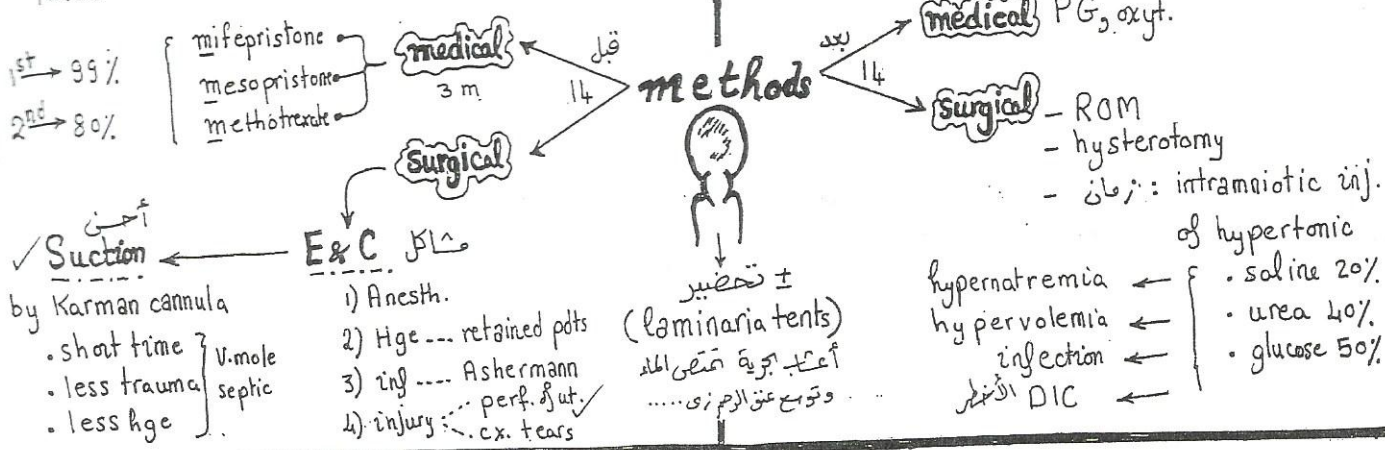 1st → 99%
2nd → 80%
mifepristone
mesopristone
methotrexate
medical
3 m
قبل
14
methods
بعد
14
medical PG, oxyt.
surgical - ROM
- hysterotomy
- زمان : intramniotic inj.
of hypertonic
. saline 20%
. urea 40%
. glucose 50%
hypernatremia ←
hypervolemia ←
infection ←
الأخطر DIC ←
surgical
E & C مشاكل
1) Anesth.
2) Hge --- retained pdts
3) inf ---- Ashermann
4) injury : perf. of ut. ✓
cx. tears
أحسن
✓ Suction
by Karman cannula
. short time
. less trauma
. less hge
V.mole
septic
± تحضير
(laminaria tents)
أعشاب بحرية تمتص الماء
وتوسع عنق الرحم زى .....